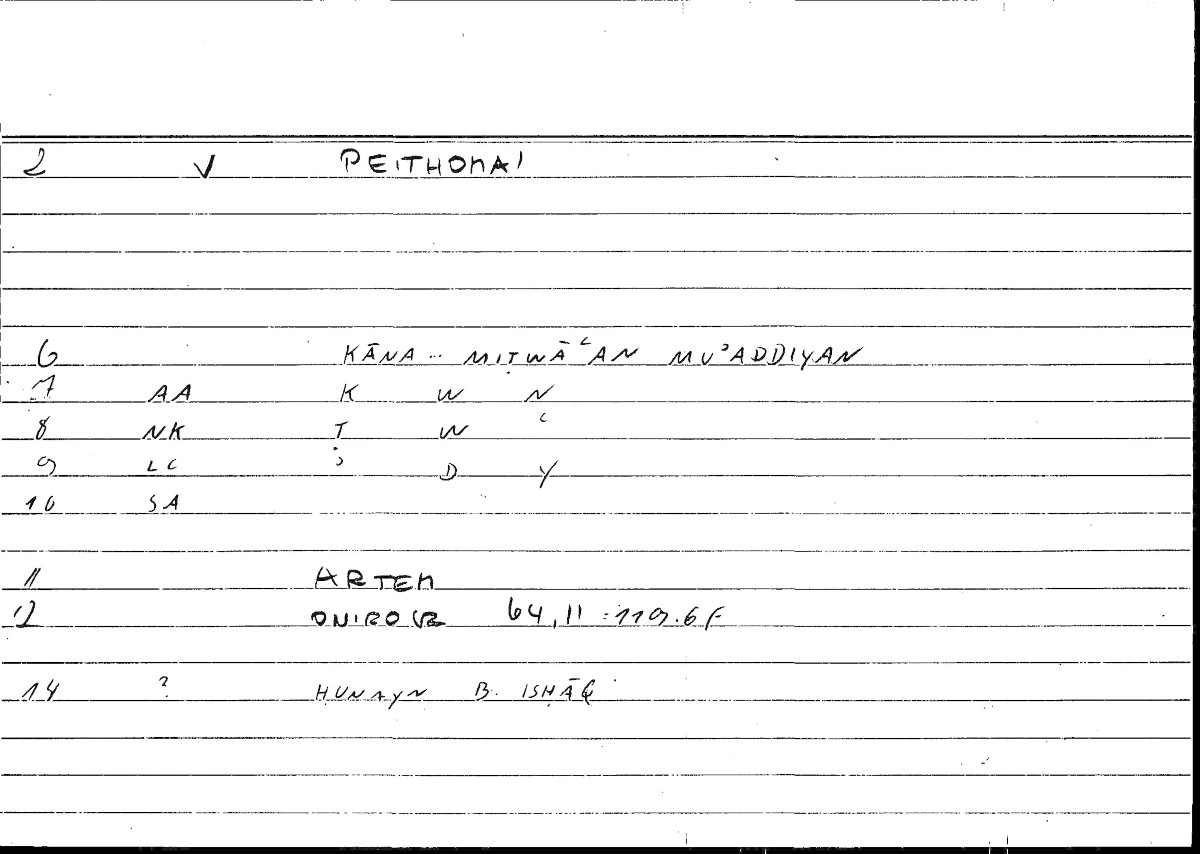 2 V PEITHOMAI
6 KĀNA .. MIṬWĀʿAN MUʾADDIYAN
7 AA K W N
8 NK Ṭ W ʿ
9 LC ʾ D Y
10 SA
11 ARTEM
12 ONIROCR 64,11 : 119.6F
14 ? ḤUNAYN B. ISḤĀQ